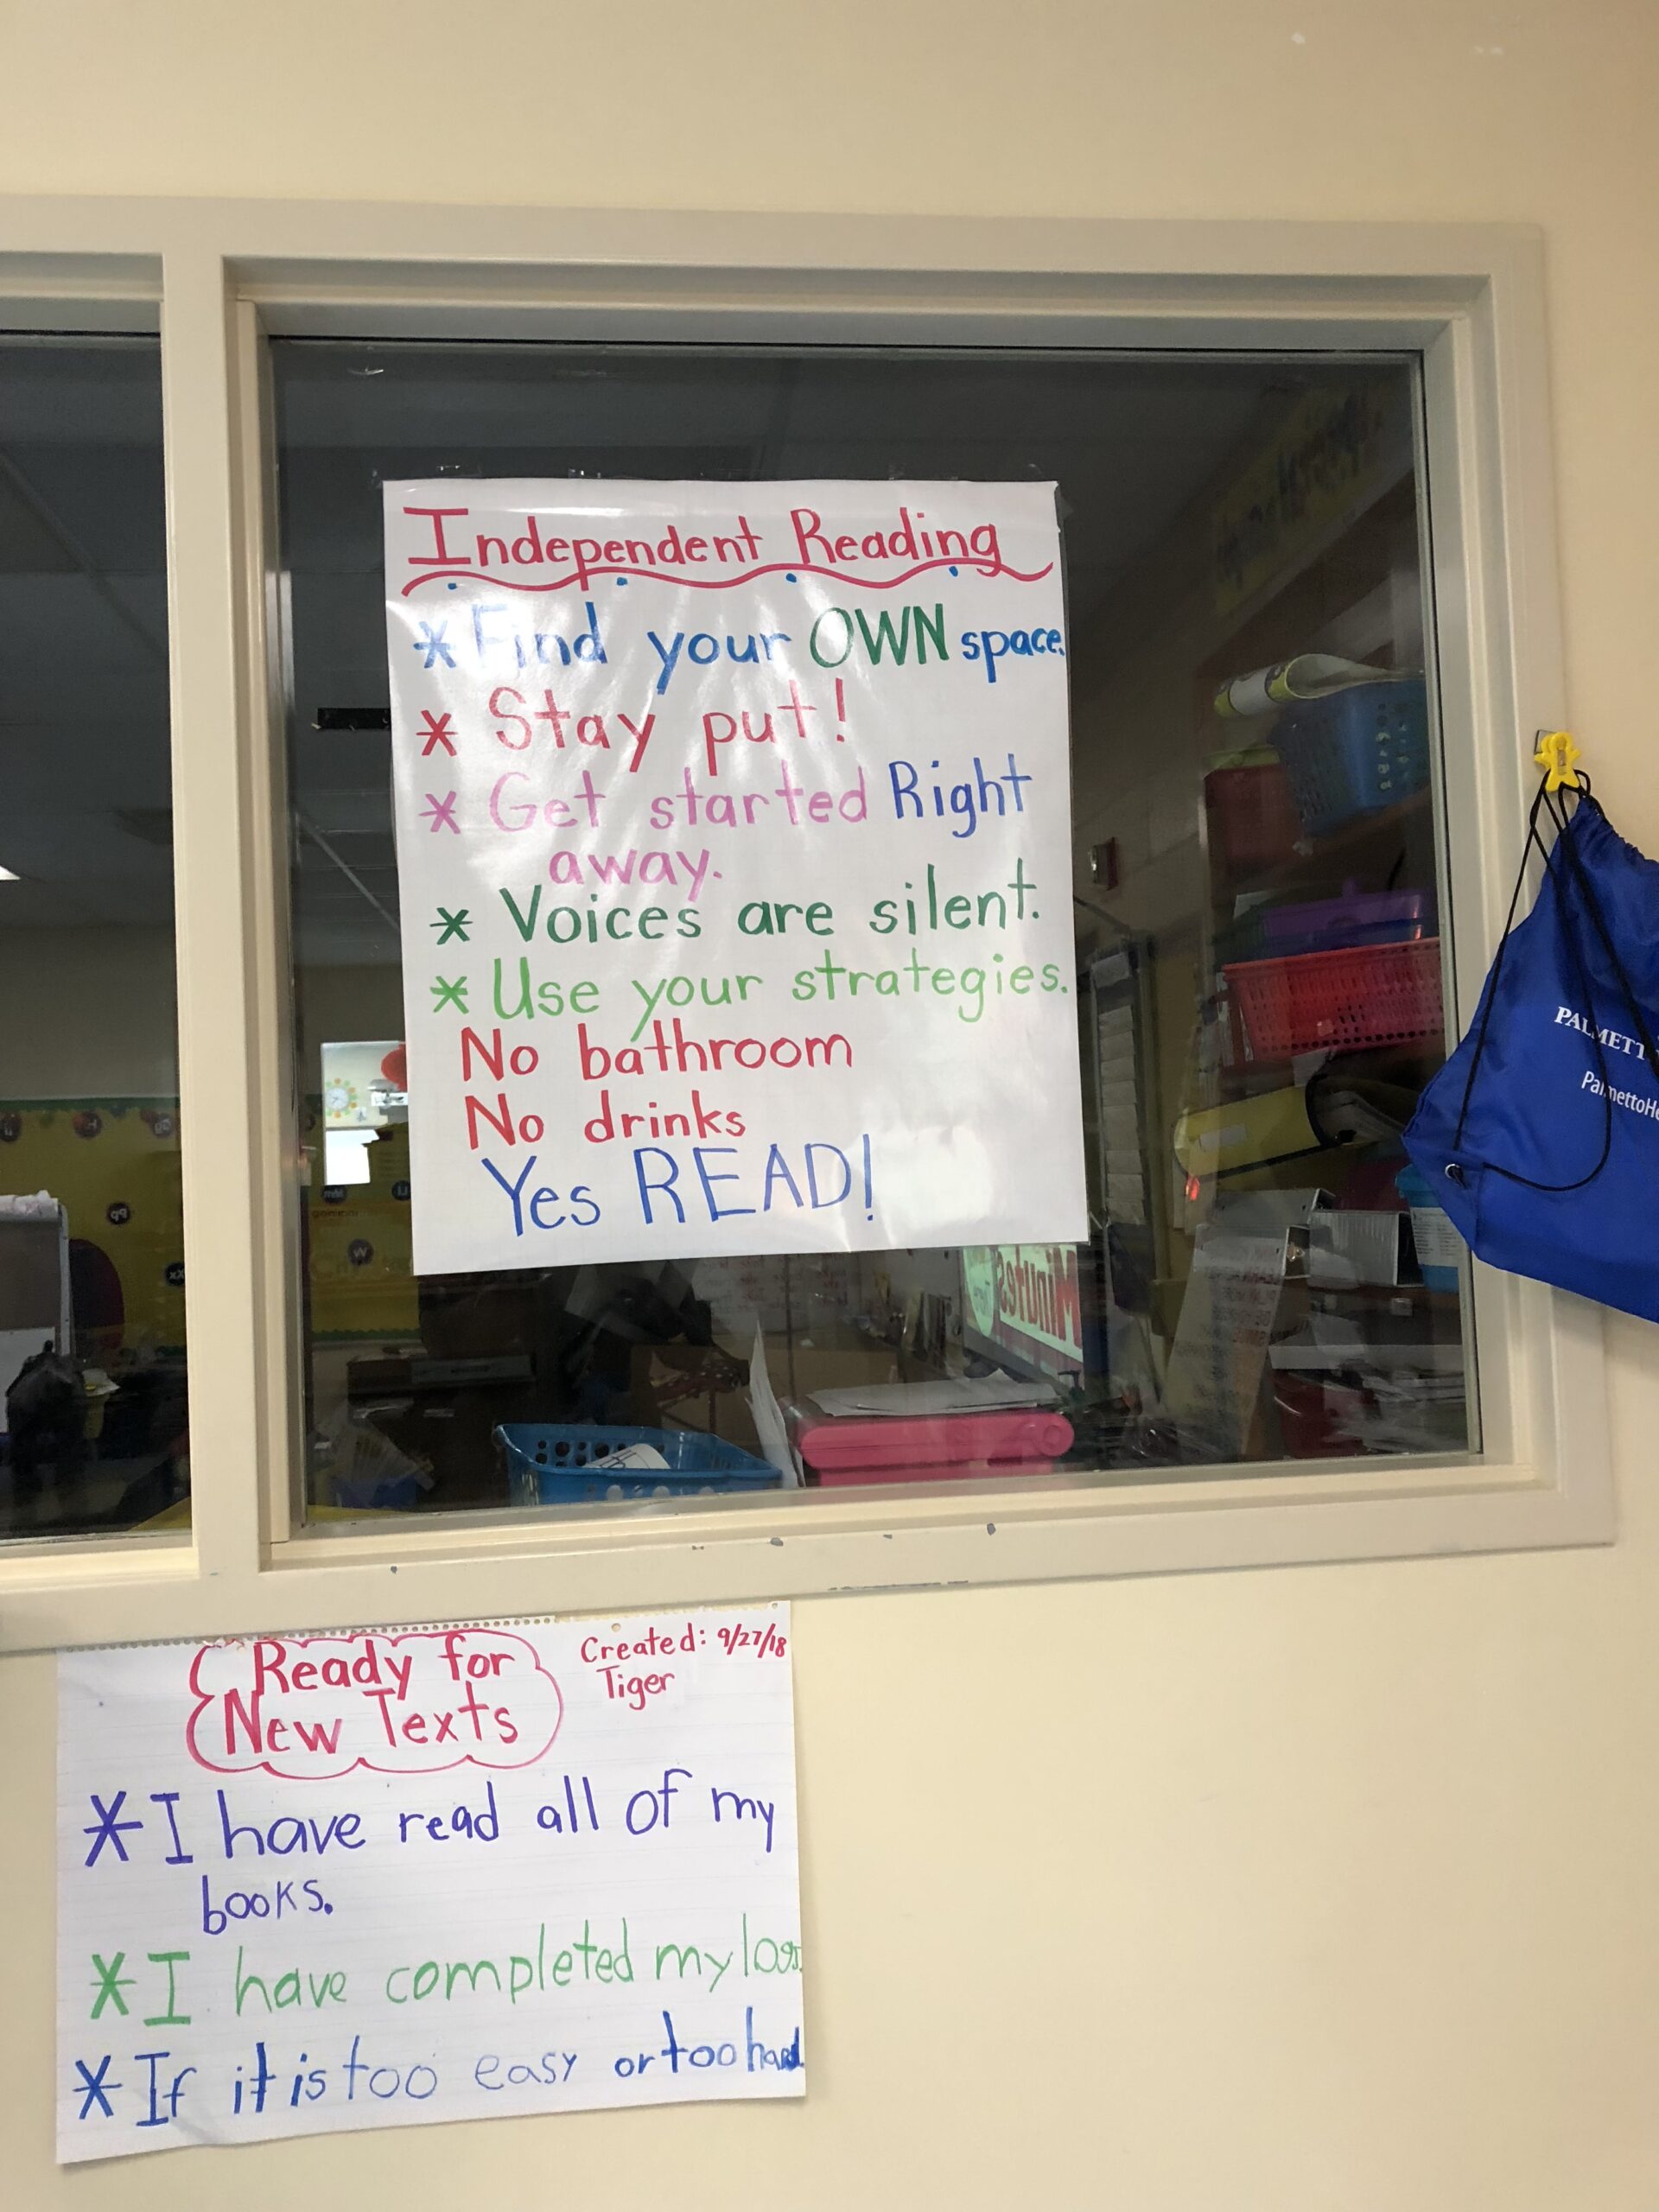 Independent Reading
* Find your OWN space.
* Stay put!
* Get started Right
away.
* Voices are silent.
* Use your strategies.
No bathroom
No drinks
Yes READ!
Minutes
PALMETT
PalmettoHe
Ready for
New Texts
Created: 9/27/18
Tiger
* I have read all of my
books.
* I have completed my logs.
* If it is too easy or too hard.